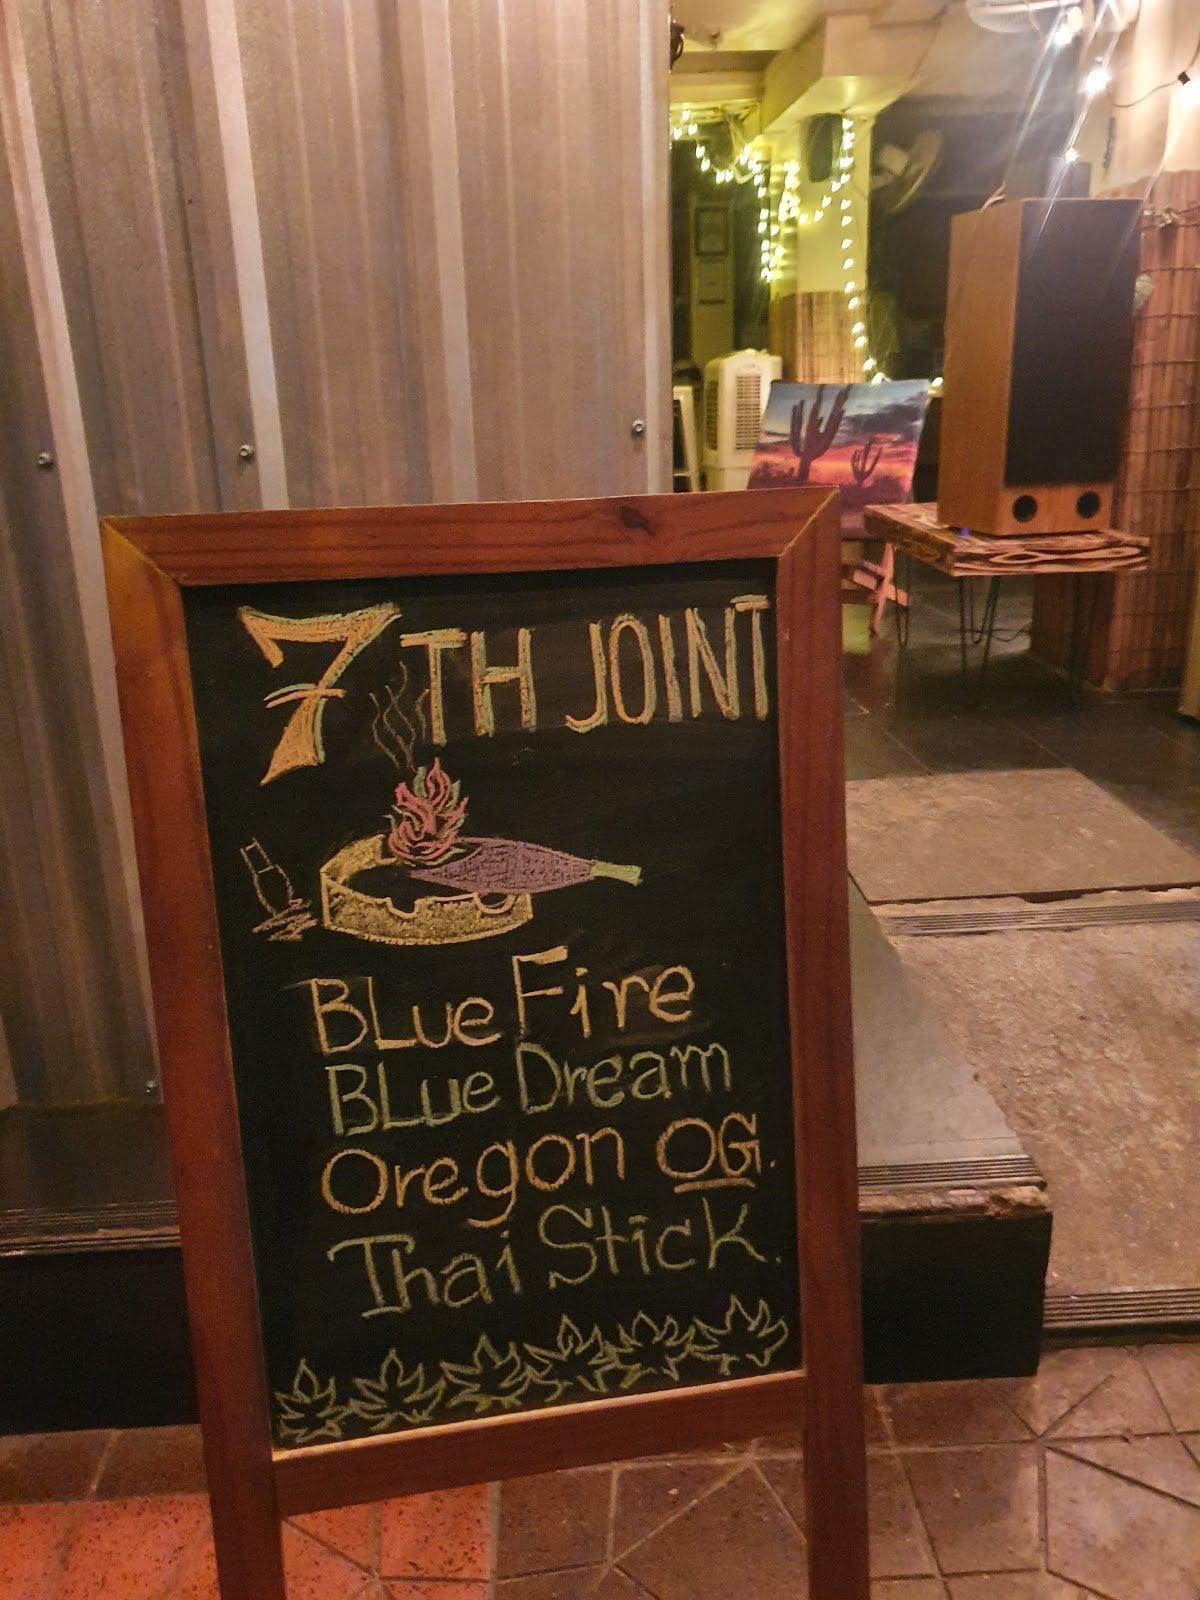 7TH JOINT
BLue Fire
BLue Dream
Oregon OG.
Thai Stick.